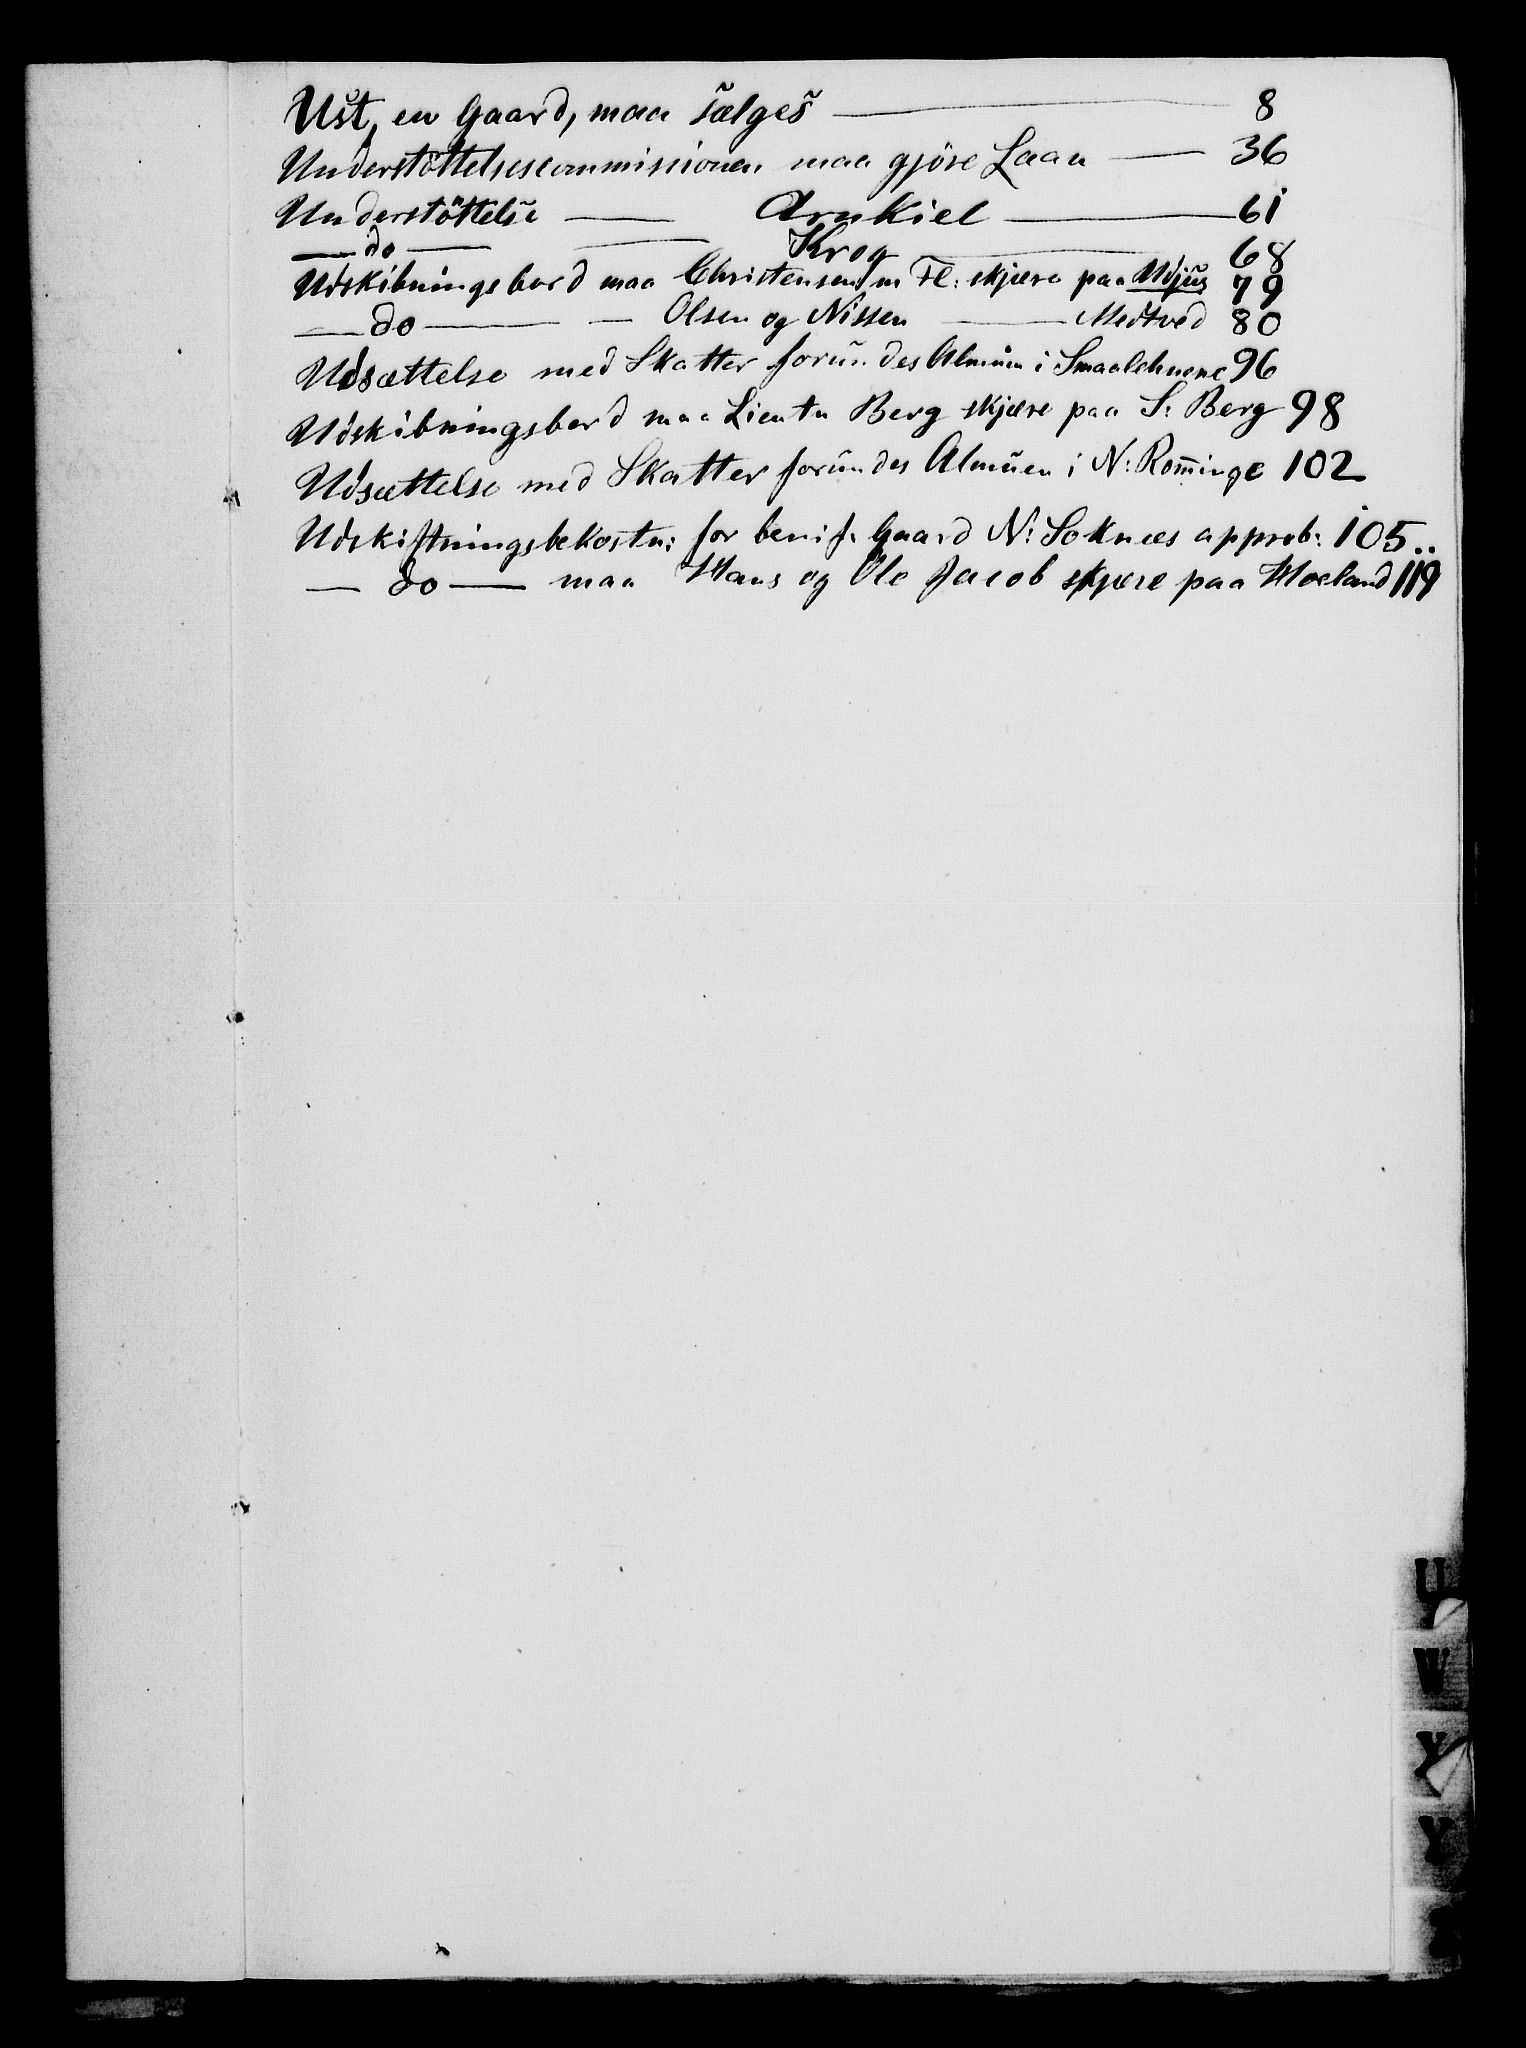 Ust, en Gaard, maa sælges — 8
Understöttelsescommissionen maa gjöre Laan — 36
Understöttelse — Arnkiel — 61
— do — — Krog — 68
Udskibningsbord maa Christensen m Fl: skjære paa 79
— do — — Olsen og Nissen — Medtved 80
Udsættelse med Skatter forundes Almuen i Smaalehnene 96
Udskibningsbord maa Lieutn Berg skjære paa S: Berg 98
Udsættelse med Skatter forundes Almuen i N: Rom̅inge 102
Udskiftningsbekostn: for benif. Gaard N: Soknæs approb: 105..
— do — maa Hans og Ole Jacob skjære paa Moeland 119
U
W
X
Y